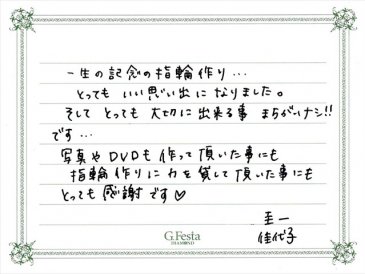 一生の記念の指輪作り…
とってもいい思い出になりました。
そしてとっても大切に出来る事まちがいナシ!!
です…
写真やDVDも作って頂いた事にも
指輪作りに力を貸して頂いた事にも
とっても感謝です♡
圭一
佳代子
G.Festa
DIAMOND